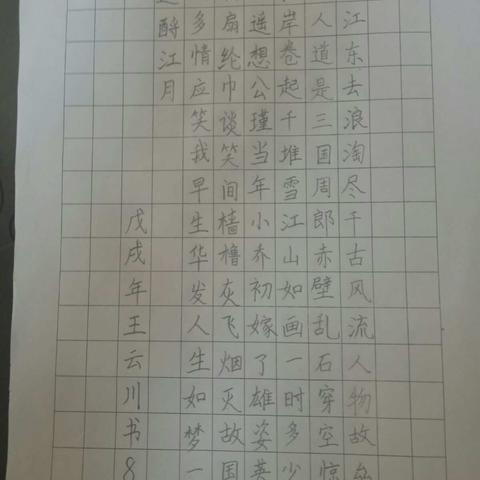 江东去浪淘尽千古风流人物故垒
人道是三国周郎赤壁乱石穿空惊
岸卷起千堆雪江山如画一时多少
遥想公瑾当年小乔初嫁了雄姿英
扇纶巾谈笑间樯橹灰飞烟灭故国
多情应笑我早生华发人生如梦一
酹江月
戊戌年王云川书8